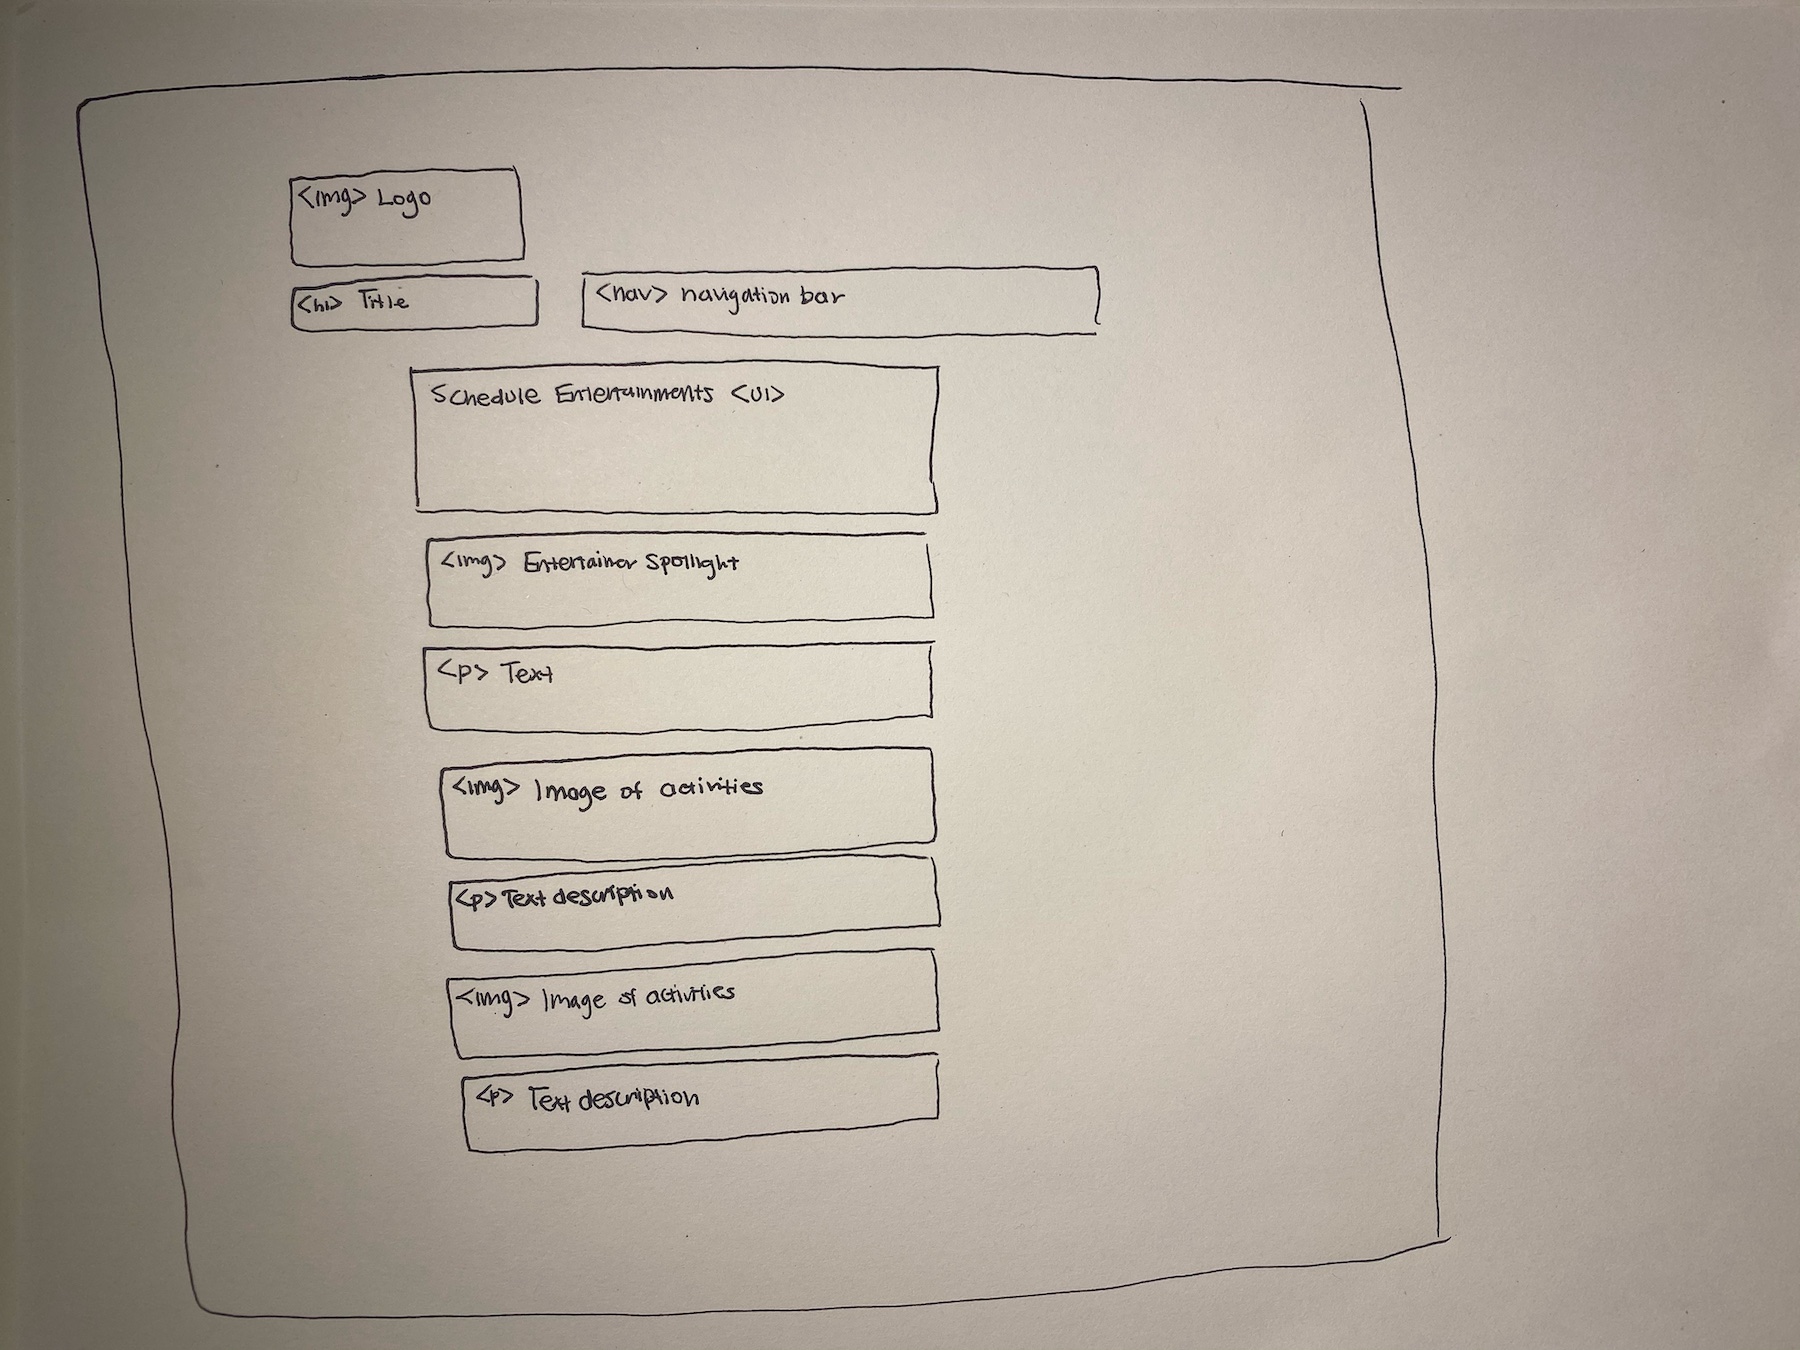 <img> Logo
<h1> Title
<nav> navigation bar
Schedule Entertainments <ul>
<img> Entertainer Spotlight
<p> Text
<img> Image of activities
<p> Text description
<img> Image of activities
<p> Text description